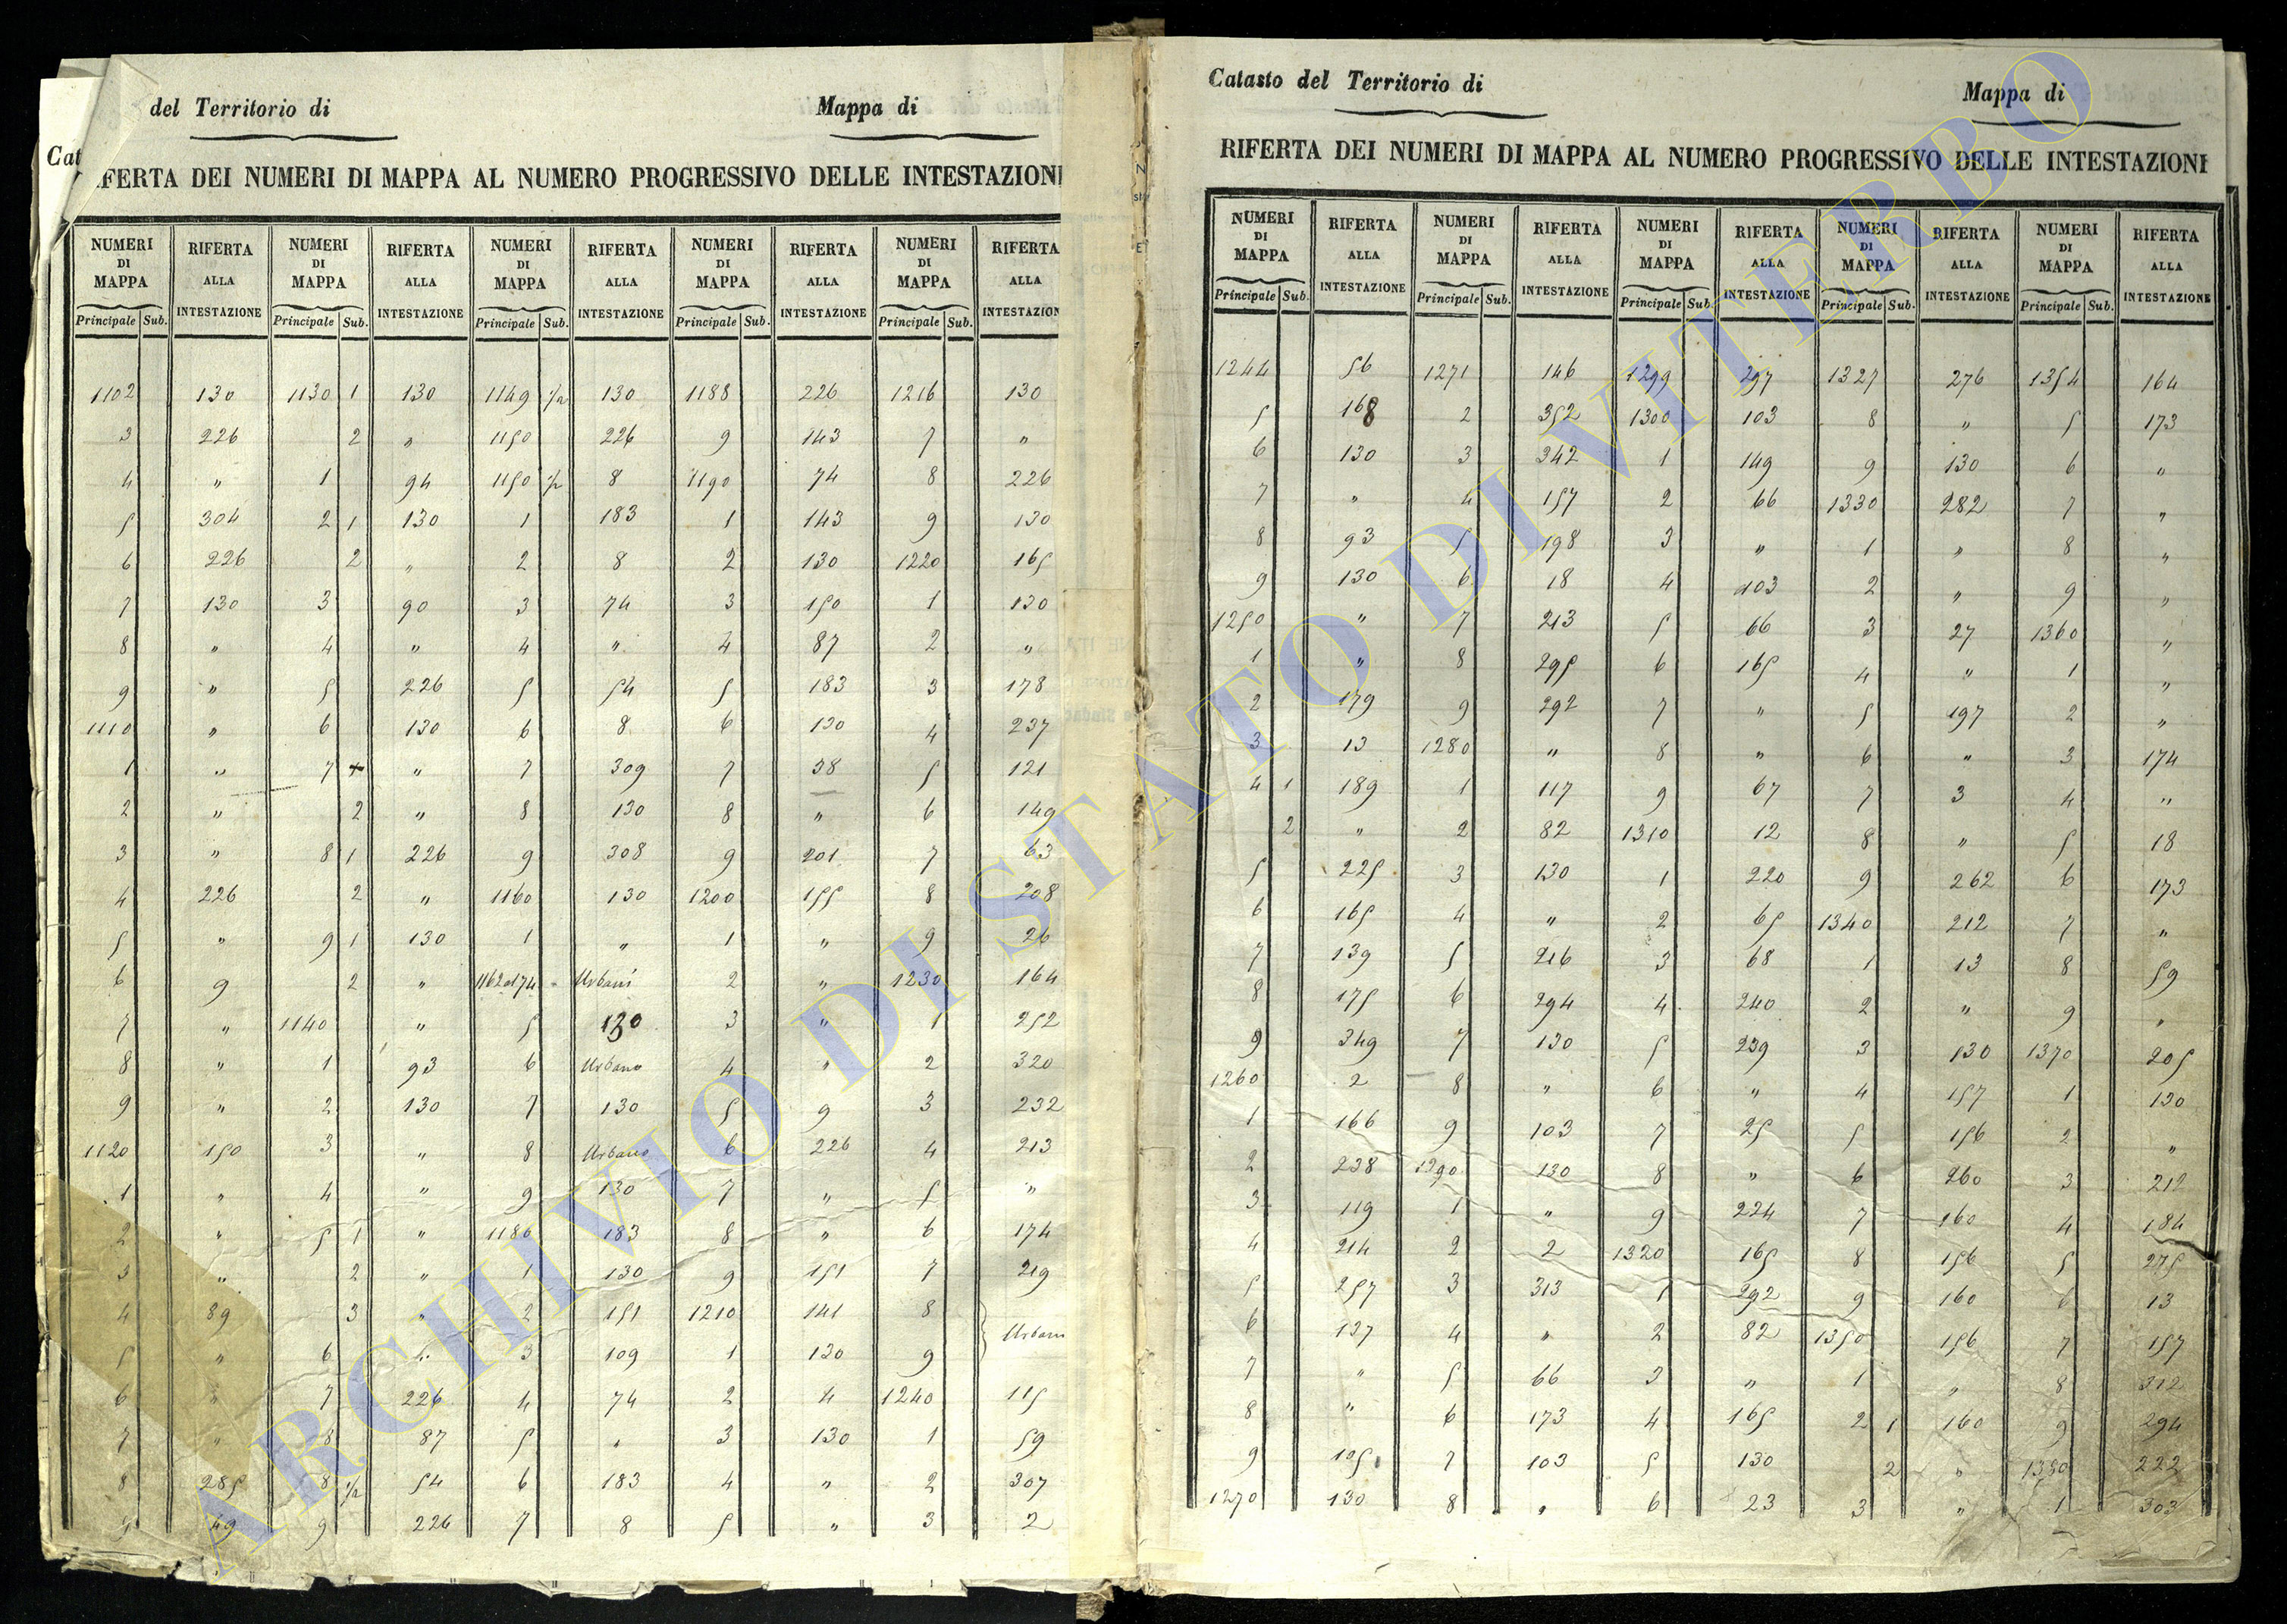 del Territorio di
Mappa di
Cat
FERTA DEI NUMERI DI MAPPA AL NUMERO PROGRESSIVO DELLE INTESTAZIONI
NUMERI DI MAPPA RIFERTA ALLA INTESTAZIONE NUMERI DI MAPPA RIFERTA ALLA INTESTAZIONE NUMERI DI MAPPA RIFERTA ALLA INTESTAZIONE NUMERI DI MAPPA RIFERTA ALLA INTESTAZIONE NUMERI DI MAPPA RIFERTA ALLA INTESTAZION
Principale Sub. Principale Sub. Principale Sub. Principale Sub. Principale Sub.
1102 130 1130 1 130 1149 1/2 130 1188 226 1216 130
3 226 2 „ 1150 226 9 143 7 „
4 „ 1 94 1150 1/2 8 1190 74 8 226
5 304 2 1 130 1 183 1 143 9 130
6 226 2 „ 2 8 2 130 1220 165
7 130 3 90 3 74 3 150 1 130
8 „ 4 „ 4 „ 4 87 2 „
9 „ 5 226 5 54 5 183 3 178
1110 „ 6 130 6 8 6 130 4 237
1 „ 7 „ 7 309 7 38 5 121
2 „ 2 „ 8 130 8 „ 6 149
3 „ 8 1 226 9 308 9 201 7 63
4 226 2 „ 1160 130 1200 155 8 208
5 „ 9 1 130 1 „ 1 „ 9 26
6 9 2 „ 1162 al 74 Urbani 2 „ 1230 164
7 „ 1140 „ 5 130 3 „ 1 252
8 „ 1 93 6 Urbano 4 „ 2 320
9 „ 2 130 7 130 5 9 3 232
1120 150 3 „ 8 Urbano 6 226 4 213
1 „ 4 „ 9 130 7 „ 5 „
2 „ 5 1 „ 1180 183 8 „ 6 174
3 „ 2 „ 1 130 9 151 7 219
4 89 3 „ 2 151 1210 141 8 Urbani
5 „ 6 „ 3 109 1 130 9
6 „ 7 226 4 74 2 4 1240 115
7 „ 8 87 5 „ 3 130 1 59
8 285 8 1/2 54 6 183 4 „ 2 307
9 49 9 226 7 8 5 „ 3 2
Catasto del Territorio di
Mappa di
RIFERTA DEI NUMERI DI MAPPA AL NUMERO PROGRESSIVO DELLE INTESTAZIONI
NUMERI DI MAPPA RIFERTA ALLA INTESTAZIONE NUMERI DI MAPPA RIFERTA ALLA INTESTAZIONE NUMERI DI MAPPA RIFERTA ALLA INTESTAZIONE NUMERI DI MAPPA RIFERTA ALLA INTESTAZIONE NUMERI DI MAPPA RIFERTA ALLA INTESTAZIONE
Principale Sub. Principale Sub. Principale Sub. Principale Sub. Principale Sub.
1244 56 1271 146 1299 297 1327 276 1354 164
5 168 2 352 1300 103 8 „ 5 173
6 130 3 342 1 149 9 130 6 „
7 „ 4 157 2 66 1330 282 7 „
8 93 5 198 3 „ 1 „ 8 „
9 130 6 18 4 103 2 „ 9 „
1250 „ 7 213 5 66 3 27 1360 „
1 „ 8 295 6 165 4 „ 1 „
2 179 9 292 7 „ 5 197 2 „
3 13 1280 „ 8 „ 6 „ 3 174
4 1 189 1 117 9 67 7 3 4 „
2 „ 2 82 1310 12 8 „ 5 18
5 225 3 130 1 220 9 262 6 173
6 165 4 „ 2 65 1340 212 7 „
7 139 5 216 3 68 1 13 8 59
8 175 6 294 4 240 2 „ 9 „
9 349 7 130 5 239 3 130 1370 205
1260 2 8 „ 6 „ 4 157 1 130
1 166 9 103 7 25 5 156 2 „
2 238 1290 130 8 „ 6 260 3 212
3 119 1 „ 9 224 7 160 4 184
4 214 2 2 1320 165 8 156 5 275
5 257 3 313 1 292 9 160 6 13
6 137 4 „ 2 82 1350 156 7 157
7 „ 5 66 3 „ 1 „ 8 312
8 „ 6 173 4 165 2 1 160 9 294
9 105 7 103 5 130 2 „ 1380 222
1270 130 8 „ 6 23 3 „ 1 303
ARCHIVIO DI STATO DI VITERBO